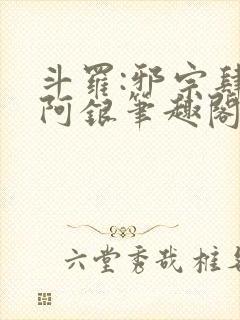 斗羅:邪宗肆
阿銀筆趣閣
六堂秀哉桩